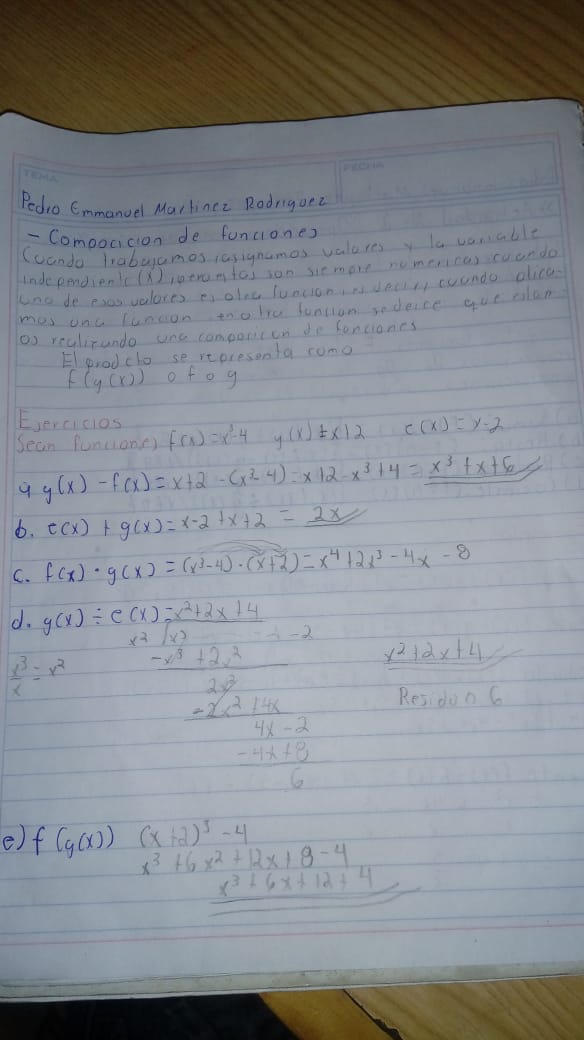 TEMA
FECHA
Pedro Emmanuel Martinez Rodriguez
- Compocicion de funciones
Cuando trabajamos asignamos valores y la variable
independiente (x), pero estas son siempre numericas cuando
una de esos valores es otra funcion, es decir, cuando
mos una funcion en otra funcion se deice que
os realizando una composicion de fonciones
El prodcto se representa como
f(g(x)) o fog
Ejercicios
Sean funciones f(x)=x³-4 g(x)=x+2 e(x)=x-2
a g(x)-f(x)=x+2-(x³-4)=x+2-x³+4=x³+x+6
b. e(x)+g(x)=x-2+x+2=2x
c. f(x)·g(x)=(x³-4)·(x+2)=x⁴+2x³-4x-8
d. g(x)÷e(x)=x²+2x+4
x2 -2
x³/x=x² -x³+2x² x²+2x+4
2x²
-2x²+4x Residuo 6
4x-2
-4x+8
6
e) f(g(x)) (x+2)³-4
x³+6x²+12x+8-4
x³+6x+12+4